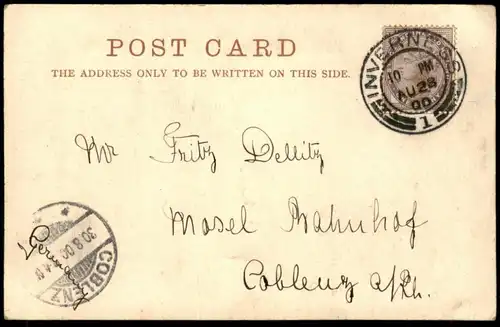 POST CARD
THE ADDRESS ONLY TO BE WRITTEN ON THIS SIDE.
INVERNESS
10 PM
AU 28
00
1
Mr Fritz Dellitz
Mosel Bahnhof
Coblenz a/Rh.
Germany
30.8.00
COBLENZ